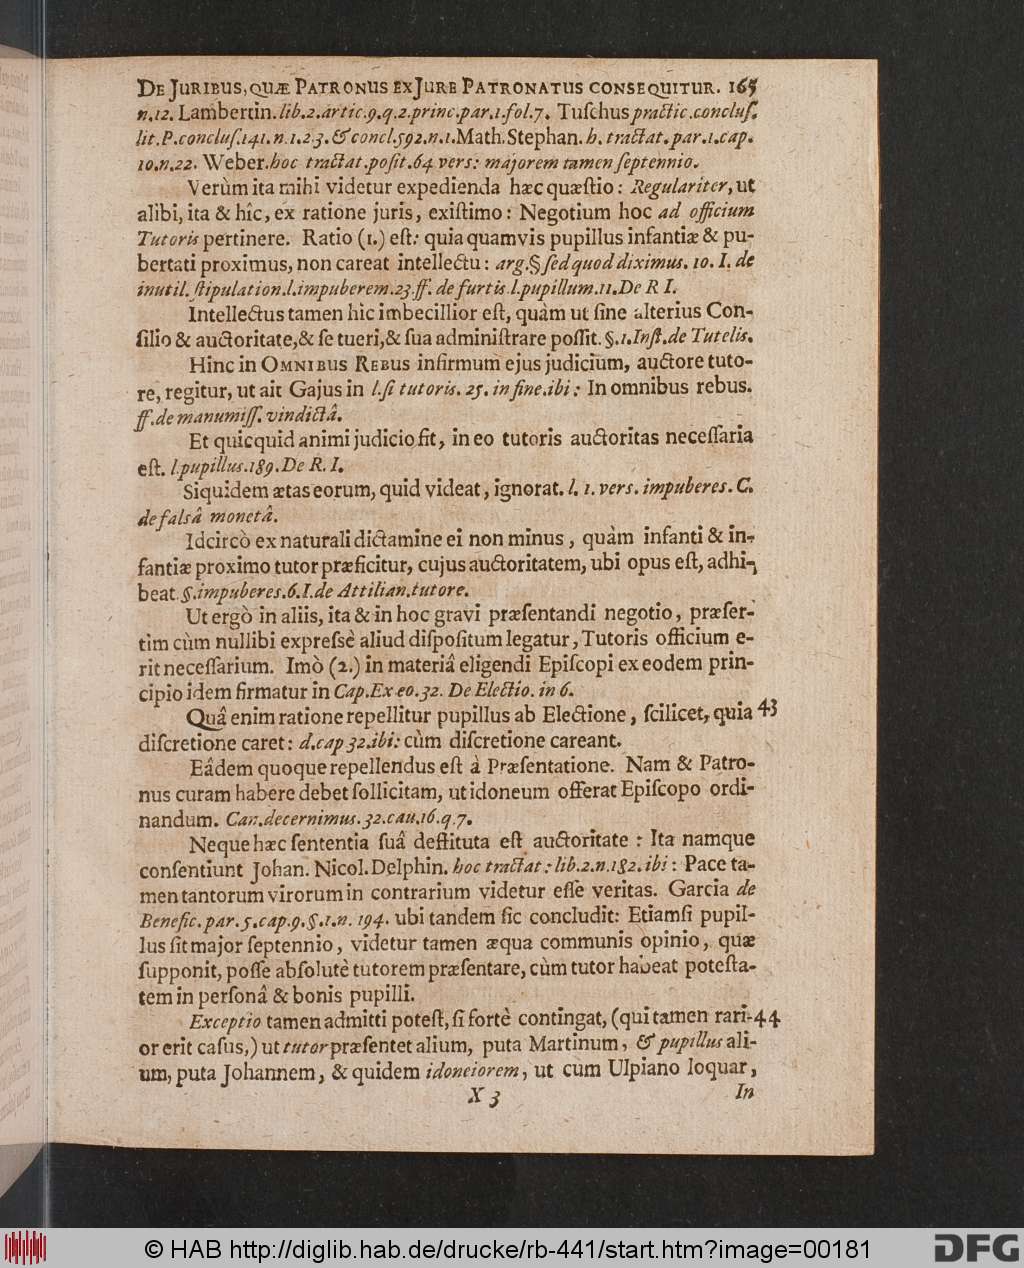 DE JURIBUS, QUÆ PATRONUS EX JURE PATRONATUS CONSEQUITUR. 165
n.12. Lambertin. lib.2.artic.9.q.2.princ.par.1.fol.7. Tuſchus practic.concluſ.
lit.P.concluſ.141.n.1.2.3.& concl.592.n.1. Math. Stephan. h. tractat.par.1.cap.
10.n.22. Weber. hoc tractat.poſit.64 vers: majorem tamen ſeptennio.
Verùm ita mihi videtur expedienda hæc quæſtio: Regulariter, ut
alibi, ita & hîc, ex ratione juris, exiſtimo: Negotium hoc ad officium
Tutoris pertinere. Ratio (1.) eſt: quia quamvis pupillus infantiæ & pu-
bertati proximus, non careat intellectu: arg.§ ſed quod diximus. 10. I. de
inutil. ſtipulation.l.impuberem.23.ff. de furtis.l.pupillum.11.De R I.
Intellectus tamen hic imbecillior eſt, quàm ut ſine alterius Con-
ſilio & auctoritate, & ſe tueri, & ſua adminiſtrare poſſit. §.1.Inſt.de Tutelis.
Hinc in OMNIBUS REBUS infirmum ejus judicium, auctore tuto-
re, regitur, ut ait Gajus in l.ſi tutoris. 25. in fine.ibi: In omnibus rebus.
ff.de manumiſſ. vindictâ.
Et quicquid animi judicio fit, in eo tutoris auctoritas neceſſaria
eſt. l.pupillus.189.De R. I.
Siquidem ætas eorum, quid videat, ignorat. l. 1. vers. impuberes. C.
de falsâ monetâ.
Idcircò ex naturali dictamine ei non minus, quàm infanti & in-
fantiæ proximo tutor præficitur, cujus auctoritatem, ubi opus eſt, adhi-
beat. §.impuberes.6.I.de Attilian.tutore.
Ut ergò in aliis, ita & in hoc gravi præſentandi negotio, præſer-
tim cùm nullibi expreſsè aliud diſpoſitum legatur, Tutoris officium e-
rit neceſſarium. Imò (2.) in materiâ eligendi Epiſcopi ex eodem prin-
cipio idem firmatur in Cap.Ex eo.32. De Electio. in 6.
Quâ enim ratione repellitur pupillus ab Electione, ſcilicet, quia 43
diſcretione caret: d.cap 32.ibi: cùm diſcretione careant.
Eâdem quoque repellendus eſt à Præſentatione. Nam & Patro-
nus curam habere debet ſollicitam, ut idoneum offerat Epiſcopo ordi-
nandum. Can.decernimus.32.cau.16.q.7.
Neque hæc ſententia ſuâ deſtituta eſt auctoritate: Ita namque
conſentiunt Johan. Nicol. Delphin. hoc tractat: lib.2.n.182.ibi: Pace ta-
men tantorum virorum in contrarium videtur eſſe veritas. Garcia de
Benefic.par.5.cap.9.§.1.n. 194. ubi tandem ſic concludit: Etiamſi pupil-
lus ſit major ſeptennio, videtur tamen æqua communis opinio, quæ
ſupponit, poſſe abſolutè tutorem præſentare, cùm tutor habeat poteſta-
tem in perſonâ & bonis pupilli.
Exceptio tamen admitti poteſt, ſi fortè contingat, (qui tamen rari- 44
or erit caſus,) ut tutor præſentet alium, puta Martinum, & pupillus ali-
um, puta Johannem, & quidem idoneiorem, ut cum Ulpiano loquar,
X 3 In
© HAB http://diglib.hab.de/drucke/rb-441/start.htm?image=00181
DFG